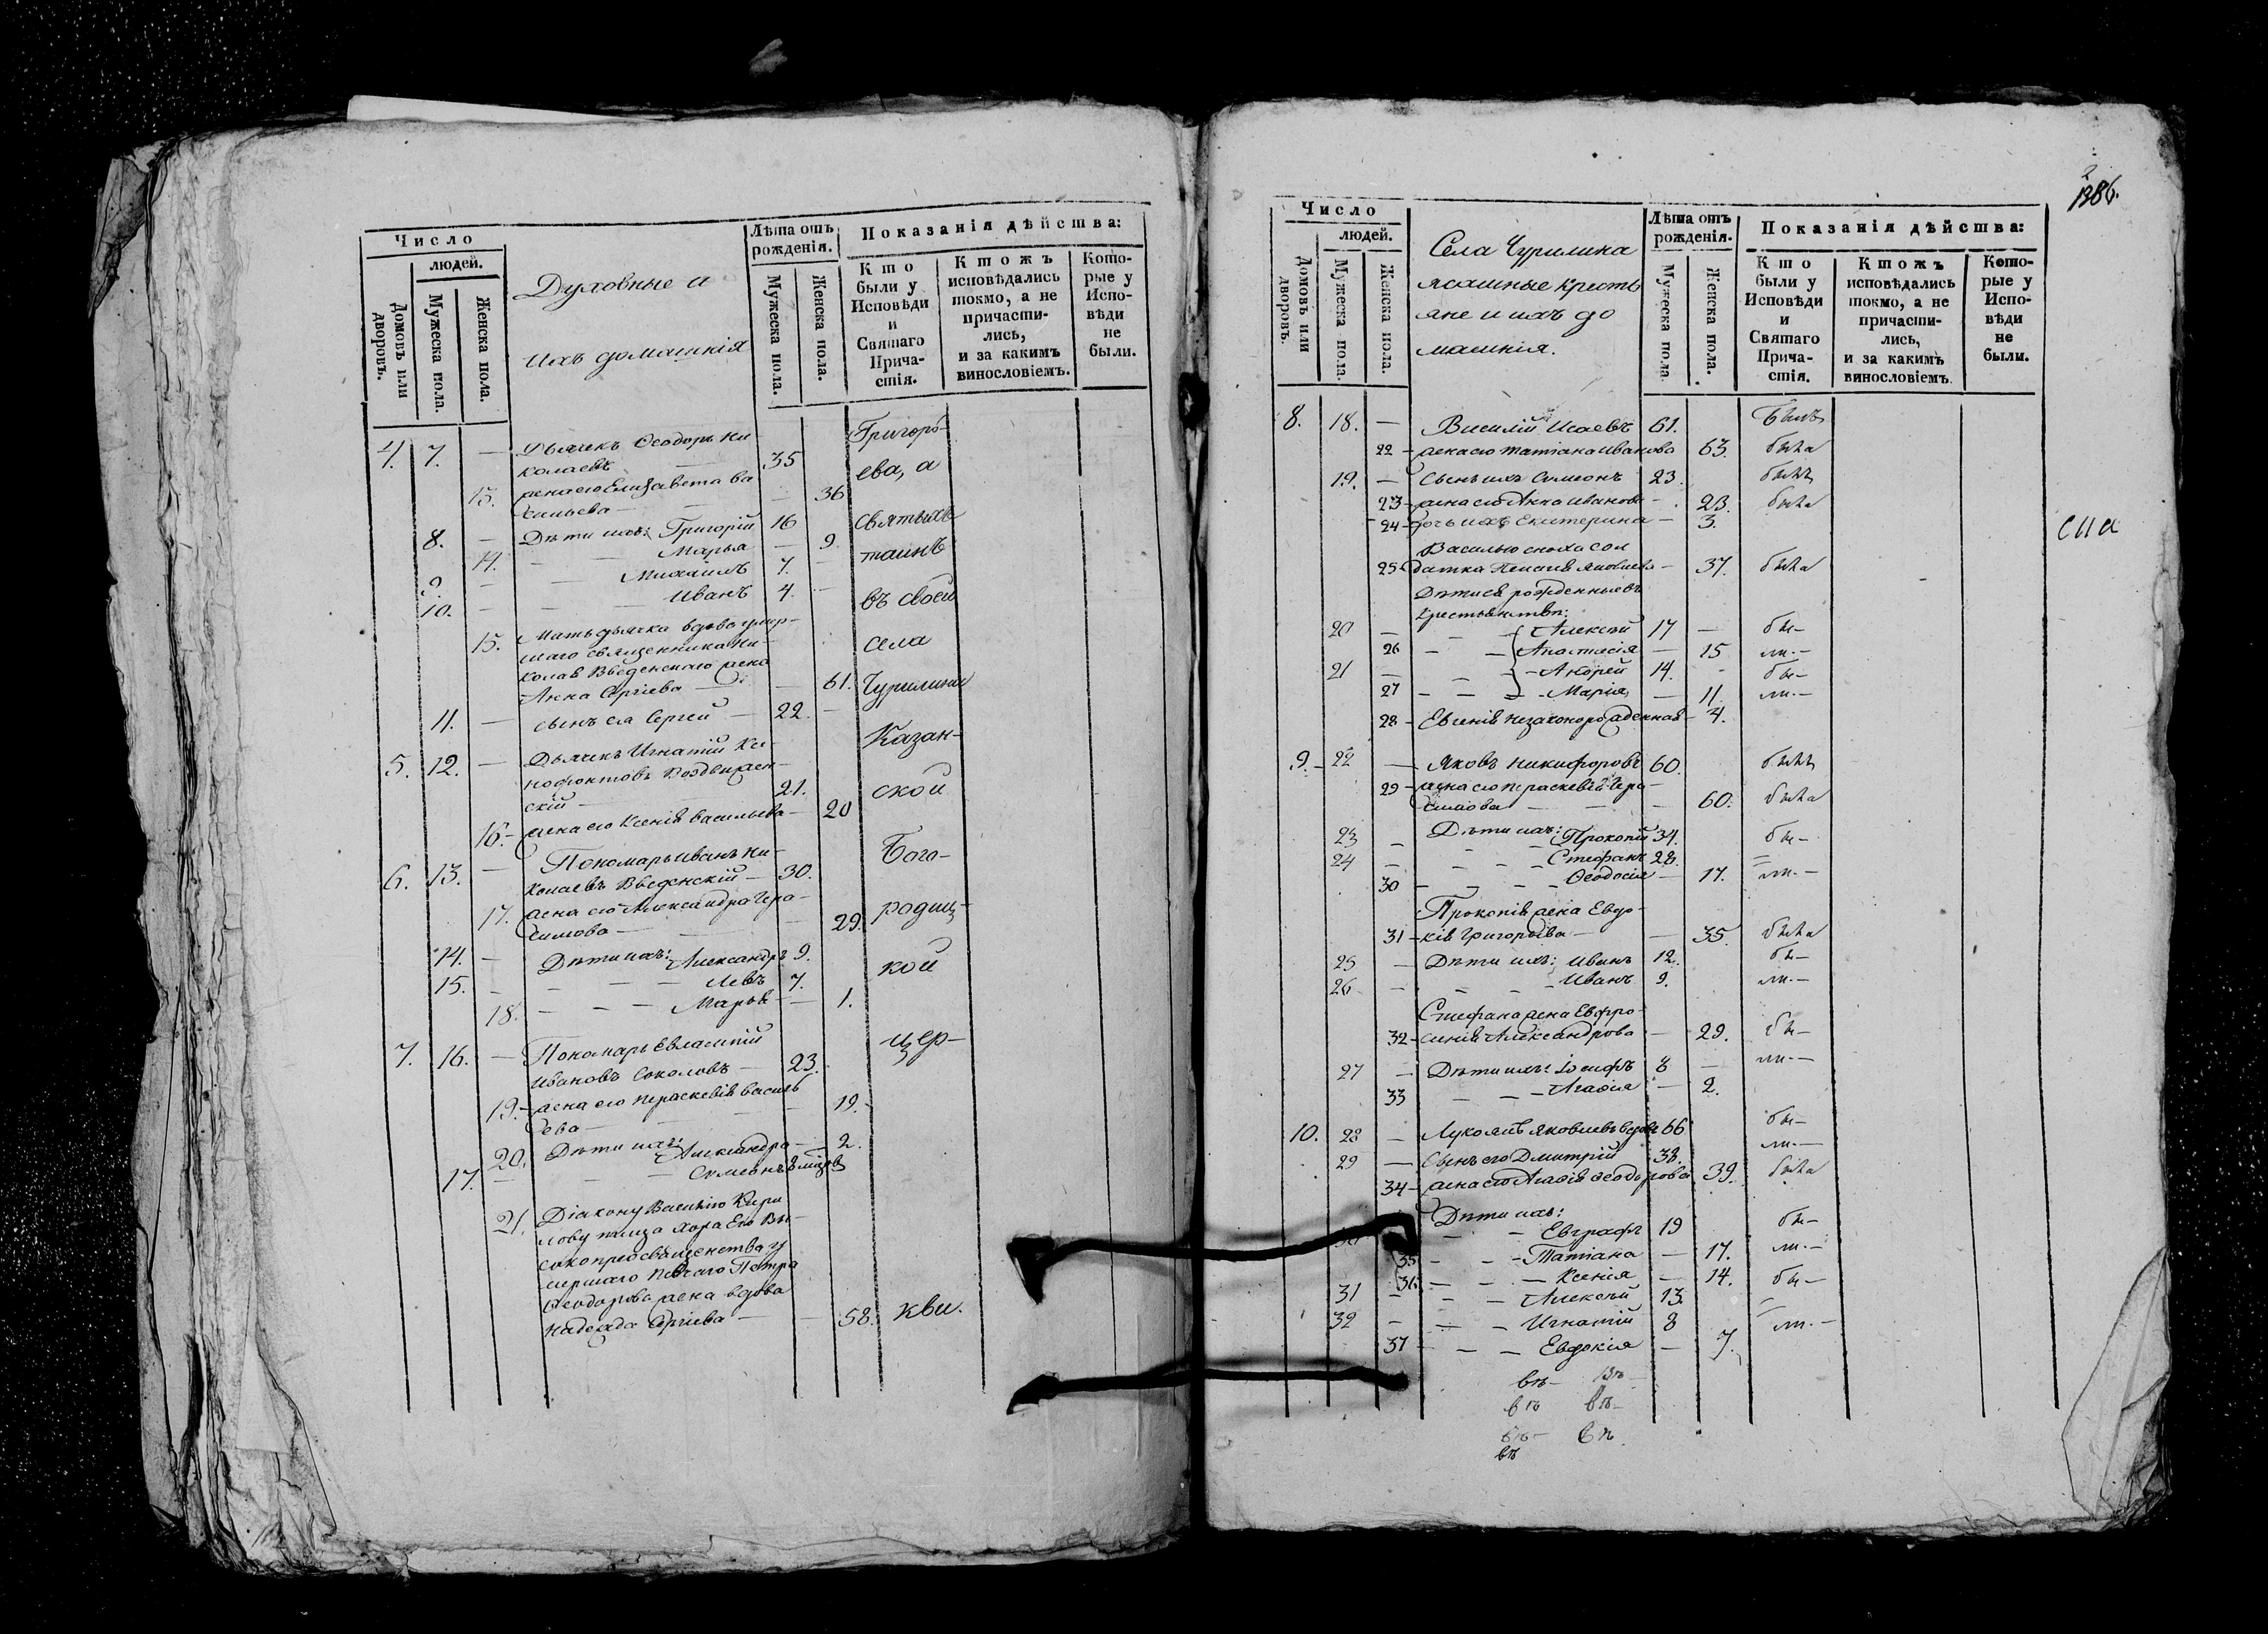 Число
людей.
Домовъ или дворовъ.
Мужеска пола.
Женска пола.
Духовные и
ихъ домашнія
Лѣта отъ рожденія.
Мужеска пола.
Женска пола.
Показанія дѣйства:
Кто были у Исповѣди и Святаго Причастія.
Ктожъ исповѣдались токмо, а не причастились, и за какимъ винословіемъ.
Которые у Исповѣди не были.
4. 7. — Дьячекъ Ѳеодоръ Ни
колаевъ — 35
13. жена его Елисавета Ва
сильева — 36
8. — Дѣти ихъ: Григорій 16
14. — Марья — 9
9. — Михаилъ 7.
10. — Иванъ 4.
15. Мать дьячка вдова умер-
шаго священника Ни-
колая Введенскаго жена
Анна Сергіева — 61.
11. — сынъ ея Сергей — 22.
5. 12. — Дьячекъ Игнатій Кс-
нофонтовъ Воздвижен-
скій — 21.
16. — жена его Ксенія Васильева — 20
6. 13. — Пономарь Иванъ Ни-
колаевъ Введенскій — 30.
17. жена его Александра Гера-
симова — 29.
14. — Дѣти ихъ: Александръ 9.
15. — Левъ 7.
18. — Марья — 1.
7. 16. — Пономарь Евлампій
Ивановъ Соколовъ — 23.
19. — жена его Параскевія Василь
ева — 19.
20. Дѣти ихъ: Александра — 2.
17. — Симеонъ
21. Діакону Василію Кири
лову теща хора Его Вы-
сокопреосвященства у
мершаго Пѣвчаго Петра
Ѳеодорова жена вдова
Надежда Сергіева — 58.
Григорь-
ева, а
святыхъ
таинъ
въ своей
села
Чурилина
Казан-
ской
Бого-
родиц-
кой
цер-
кви.
1386.
Число
людей.
Домовъ или дворовъ.
Мужеска пола.
Женска пола.
Села Чурилина
ясашные кресть
яне и ихъ до
машнія.
Лѣта отъ рожденія.
Мужеска пола
Женска пола.
Показанія дѣйства:
Кто были у Исповѣди и Святаго Причастія.
Ктожъ исповѣдались токмо, а не причастились, и за какимъ винословіемъ
Которые у Исповѣди не были.
8. 18. — Василій Исаевъ 61. былъ
22 — жена его Татіана Иванова 63. была
19. — Сынъ ихъ Симеонъ 23. былъ
23 — жена его Анна Иванова — 23. была
24 — дочь ихъ Екатерина — 3.
Василью сноха сол
25 датка Пелагея Яковлева — 37. была
Дѣти ея рожденные въ
крестьянствѣ:
20 — Алексѣй 17 — бы-
26 — Анастасія — 15 ли. —
21 — Андрей 14. — бы-
27 — Марія — 11. ли. —
28 — Евгенія незаконорожденная — 4.
9. 22 — Яковъ Никифоровъ 60. былъ
29 — жена его Параскевія Гера-
симова — 60. была
23 — Дѣти ихъ: Прокопій 34. бы-
24 — Стефанъ 28.
30 — Ѳеодосія — 17. ли. —
Прокопія жена Евдо-
31 — кія Григорьева — 35. была
25 — Дѣти ихъ: Иванъ 12. бы-
26 — Иванъ 9. ли. —
Стефана жена Евфро-
32 — синія Александрова — 29. бы-
27 — Дѣти ихъ: Іосифъ 8 — ли. —
33 — Агафія — 2.
10. 28 — Лукоянъ Яковлевъ вдовъ 66 бы-
29 — Сынъ его Дмитрій 38. ли. —
34 — жена его Агафія Ѳеодорова 39. была
Дѣти ихъ:
30 — Евграфъ 19 бы-
35 — Татіана — 17. ли. —
36 — Ксенія — 14. бы-
31 — Алексѣй 13.
32 — Игнатій 8 ли. —
37 — Евдокія — 7.